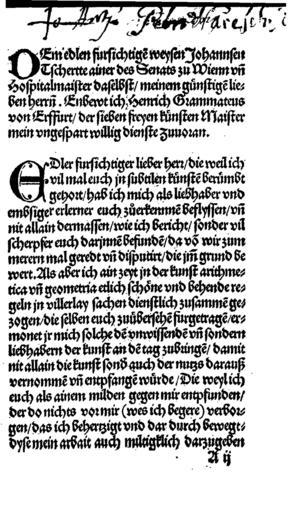 DEm edlen fursichtigẽ weysen Johannsen
Tschertte ainer des Senats zu Wienn vñ
Hospitalmaister daselbst/ meinem günstigẽ lie-
ben herrñ. Enbeut ich Henrich Grammateus
von Erffurt/ der sieben freyen künsten Maister
mein vngespart willig dienste zuuoran.
EDler fursichtiger lieber herr/ die weil ich
vil mal euch jn subtilen künstẽ berümbt
gehort/ hab ich mich als liebhaber vnd
embsiger erlerner euch zůerkennẽ beflyssen/ vñ
nit allain dermassen/ wie ich bericht/ sonder vil
scherpfer euch darjnnẽ befundẽ/ da võ wir zum
merern mal geredt vñ disputirt/ die jm̃ grund be
wert. Als aber ich ain zeyt jn der kunst arithme-
tica vñ geometria etlich schöne vnd behende re-
geln jn villerlay sachen dienstlich zusammẽ ge-
zogen/ die selben euch zuübersehẽ furgetragẽ/ er-
monet jr mich solche dẽ vnwissendẽ vñ sondern
liebhabern der kunst an dẽ tag zubringẽ/ damit
nit allain die kunst sonđ auch der nutzs darauß
vernommẽ vñ entpfangẽ würde/ Die weyl ich
euch als ainem milden gegen mir entpfunden/
der do nichts vor mir (wes ich begere) verbor-
gen/ das ich behertzigt vnd dar durch bewegt-
dyse mein arbait auch miltigklich darzugeben
A ij